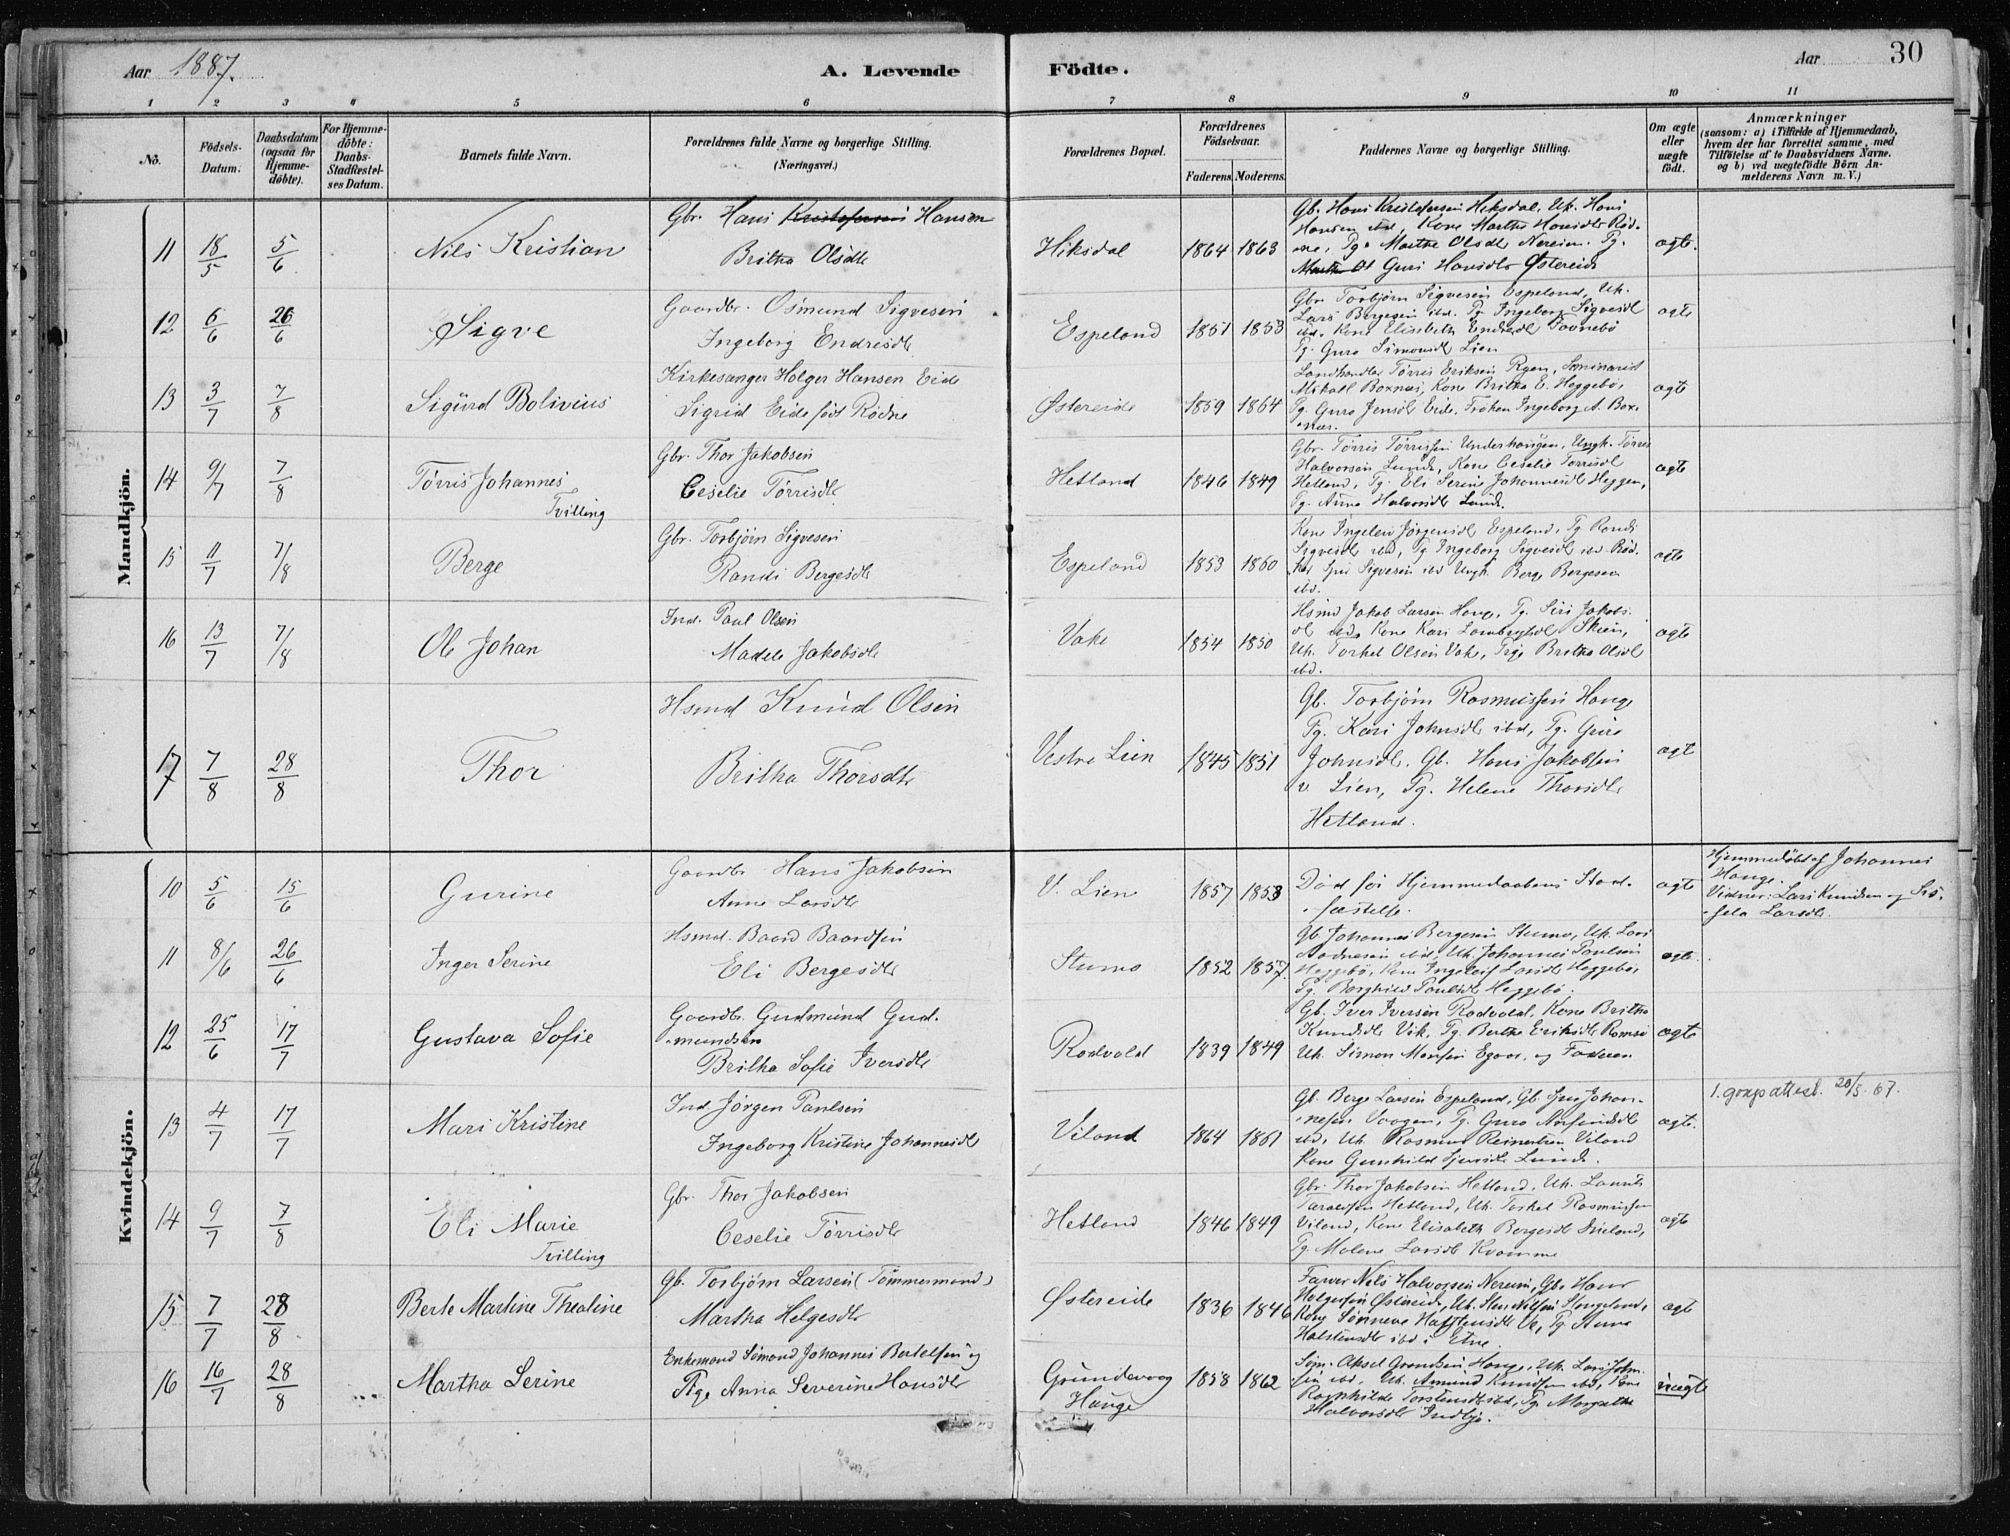 Aar 1887. A. Levende Födte. Aar 30
1 2 3 4 5 6 7 8 9 10 11
No. Födsels-Datum. Daabsdatum (ogsaa for Hjemme-döbte). For Hjemme-döbte: Daabs-Stadfæstel-ses Datum. Barnets fulde Navn. Forældrenes fulde Navne og borgerlige Stilling. (Næringsvei.) Forældrenes Bopæl. Forældrenes Födselsaar. Faderens. Moderens. Faddernes Navne og borgerlige Stilling. Om ægte eller uægte födt. Anmærkninger (saasom: a) i Tilfælde af Hjemmedaab, hvem der har forrettet samme, med Tilföielse af to Daabsvidners Navne. og b) ved uægtefödte Börn An-melderens Navn m. V.)
Mandkjön.
11 18/5 5/6 Nils Kristian Gbr. Hans Kristofersen Hansen
Britha Olsdtr Hiksdal 1864 1863 Gb. Hans Kristofersen Hiksdal, Uk. Hans
Hansen ibd, Kone Martha Hansdtr Rød-
ne, Pg. Marthe Olsdtr Nereim. Pg.
Guri Hansdtr Østereide ægte.
12 6/6 26/6 Sigve Gaardbr. Osmund Sigvesen
Ingeborg Endresdtr Espeland 1851 1853 Gbr Torbjörn Sigvesen Espeland, Uk.
Lars Bergesen ibd. Pg Ingeborg Sigvesdtr
ibd, Kone Elisabeth Endresdtr
Pg. Guro Simonsdtr Lien ægte
13 3/7 7/8 Sigurd Bolivius Kirkesanger Holger Hansen Eide
Sigrid Eide født Rødne Østereide 1859 1864 Landhandler Tørris Eriksen Rygen, Seminarist
Mikall Boxnæs, Kone Britha E. Heggebø,
Pg. Guro Jensdtr Eide, Frøken Ingeborg A. Box-
næs. ægte
14 9/7 7/8 Tørris Johannes
Tvilling Gbr. Thor Jakobsen
Ceselie Tørrisdtr Hetland 1846 1849 Gbr. Tørris Tørrissen Underhaugen, Ungk. Tørris
Halvorsen Lunde, Kone Ceselie Tørrisdtr
Hetland, Pg. Eli Serine Johannesdtr Heggen,
Pg. Anna Halvorsdtr Lunde. ægte
15 11/7 7/8 Berge Gbr. Torbjörn Sigvesen
Randi Bergesdtr Espeland 1853 1860 Kone Ingeleiv Jørgensdtr Espeland, Pg Randi
Sigvesdtr ibd, Pg Ingeborg Sigvesdtr ibd
Sigvesen ibd Ungk. Berge Bergesen
ibd. ægte
16 13/7 7/8 Ole Johan Ind. Paul Olsen
Madele Jakobsdtr Vake 1854 1850 Hsmd Jakob Larsen Hauge, Pg. Siri Jakobs-
dtr ibd, Kone Kari Lambregtsdtr Skien,
Uk. Torkel Olsen Vake, Pige Britha Olsdtr
ibd. ægte
17 7/8 28/8 Thor Hsmd Knud Olsen
Britha Thorsdtr Vestre Lien 1845 1851 Gb. Torbjörn Rasmussen Hauge
Pg. Kari Johnsdtr ibd, Pg. Guro
Johnsdtr. Gb. Hans Jakobsen
v Lien, Pg. Helene Thorsdtr
Hetland. ægte
Kvindekjön.
10 5/6 15/6 Gurine Gaardbr Hans Jakobsen
Anna Larsdtr V. Lien 1857 1853 Død før Hjemmedaabens Stad-
fæstelse. ægte Hjemmedøbt af Johannes
Hauge.
Vidner: Lars Knudsen og Si-
sela Larsdtr.
11 8/6 26/6 Inger Serine Hsmd. Baard Baardsen
Eli Bergesdtr Stumo 1852 1857. Gb. Johannes Bergesen Stumo, Uk. Lars
ibd, Uk. Johannes Paulsen
Heggebø, Kone Ingeleif Larsdtr Heggebø,
Pg. Borghild Paulsdtr Heggebø. ægte
12 25/6 17/7 Gustava Sofie Gaardbr. Gudmund Gud-
mundsen
Britha Sofie Iversdtr Rodvald 1839 1849 Gb. Iver Iversen Rodvald, Kone Britha
Knudsdtr Vik, Pg. Berthe Eriksdtr Ramsø
Uk. Simon Monsen og Faderen ægte
13 4/7 17/7 Mari Kristine Ind Jörgen Paulsen
Ingeborg Kristine Johannesdtr Viland 1864 1861 Gb. Berge Larsen Espeland, Gb Johan-
nesen Vaagen, Pg. Guro Arnfinsdtr
ibd, Uk. Rasmus Reinertsen Viland
Kone Gunhild Sjursdtr Lunde. ægte. 1. gangs attest. 20/5. 67.
14 9/7 7/8 Eli Marie
Tvilling Gbr. Thor Jakobsen
Ceselie Tørrisdtr Hetland 1846 1849 Gbr. Thor Jakobsen Hetland, Uk. Laurits
Hetland, Uk. Torkel Rasmussen
Viland, Kone Elisabeth Bergesdtr
Pg. Malene Larsdtr Kvamme ægte
15 7/7 28/8 Berte Martine Thealine Gb. Torbjörn Larsen (Tømmermand)
Martha Helgesdtr Østereide 1836 1846 Farver Nils Halvorsen Nereim, Gbr Hans
Holgersen Østereide, Uk. Sten Nilsen
Kone Sønneva Halstensdtr Pg Anna
Halstensdtr ibd i Etne ægte
16 16/7 28/8 Martha Serine Enkemand Sømand Johannes Bertelsen og
Pige Anna Severine Hansdtr Grindevoog
Hauge 1858 1862 Søm. Aksel Hauge, Uk. Lars John-
sen ibd, Uk. Amund Knudsen ibd, Kone
Ragnhilde Torstensdtr ibd, Pg. Margrethe
Halvorsdtr uægte